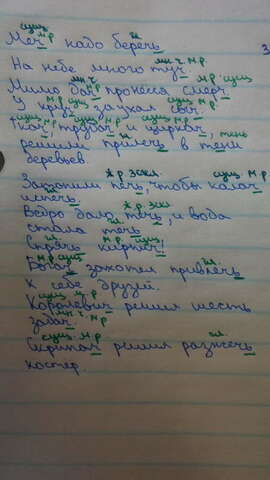 сущ. м.р. гл.
Меч надо беречь
мн.ч. м.р.
На небе много туч
мн.ч. м.р. сущ.
Мимо дач пронёсся смерч
м.р. сущ. сущ. м.р.
У круч заухал сыч
сущ. м.р.
Ткач, трубач и циркач,
решили прилечь в тени
деревьев.
ж.р. 3 скл. сущ. м.р.
Затопили печь, чтобы калач
испечь.
ж.р. 3 скл.
Ведро дало течь, и вода
стала течь
гл. м.р. сущ.
Спрячь кирпич!
м.р. сущ. гл.
Богач захотел привлечь
к себе друзей.
сущ. м.р.
Королевич решил шесть
мн.ч. м.р.
задач.
сущ. м.р. гл.
Скрипач решил разжечь
костёр.